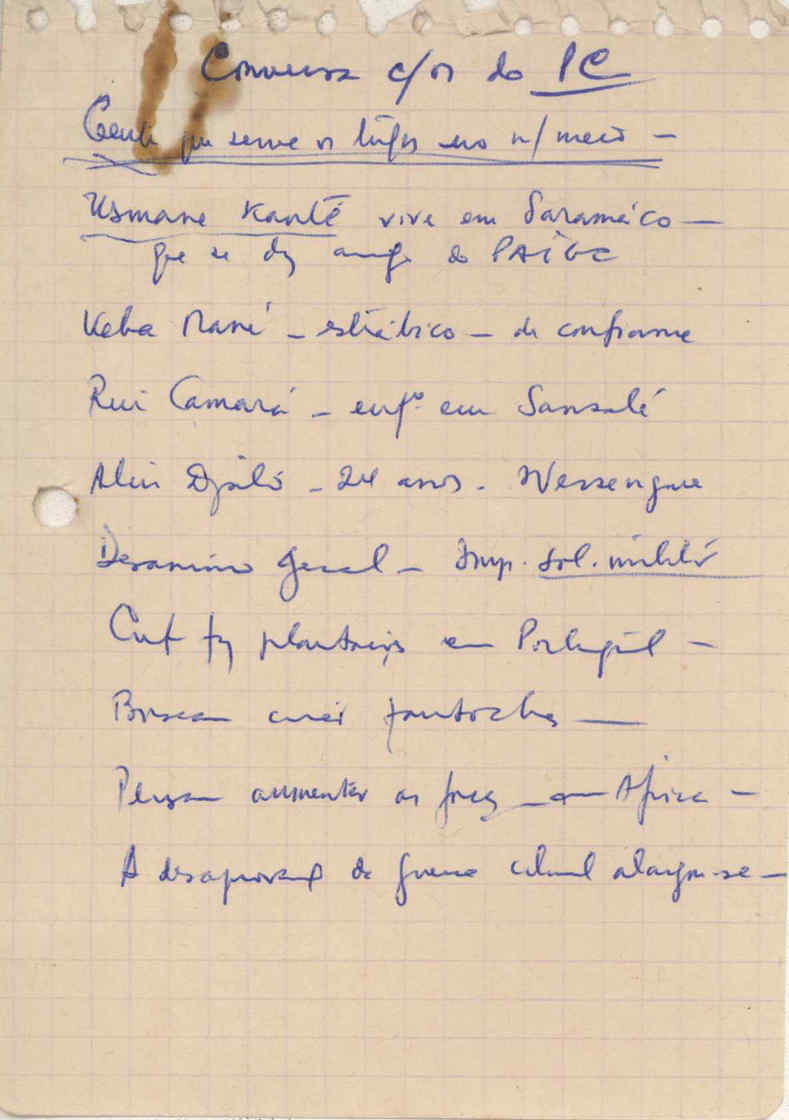 Conversa c/os do PC
Gente que serve os tugas no n/ meio —
Usmane Kanté vive em Saraméco —
que se diz amigo do PAIGC
Keba Mané — estrábico — de confiança
Rui Camará — enfº em Sansalé
Aliu Djaló — 24 anos.
Desanimo geral — Imp. sol. militar
Cont. fez em Portugal —
Buscam criar fantoches —
Pensam aumentar as forças em Africa —
A desaprovação da guerra colonial alarga-se —